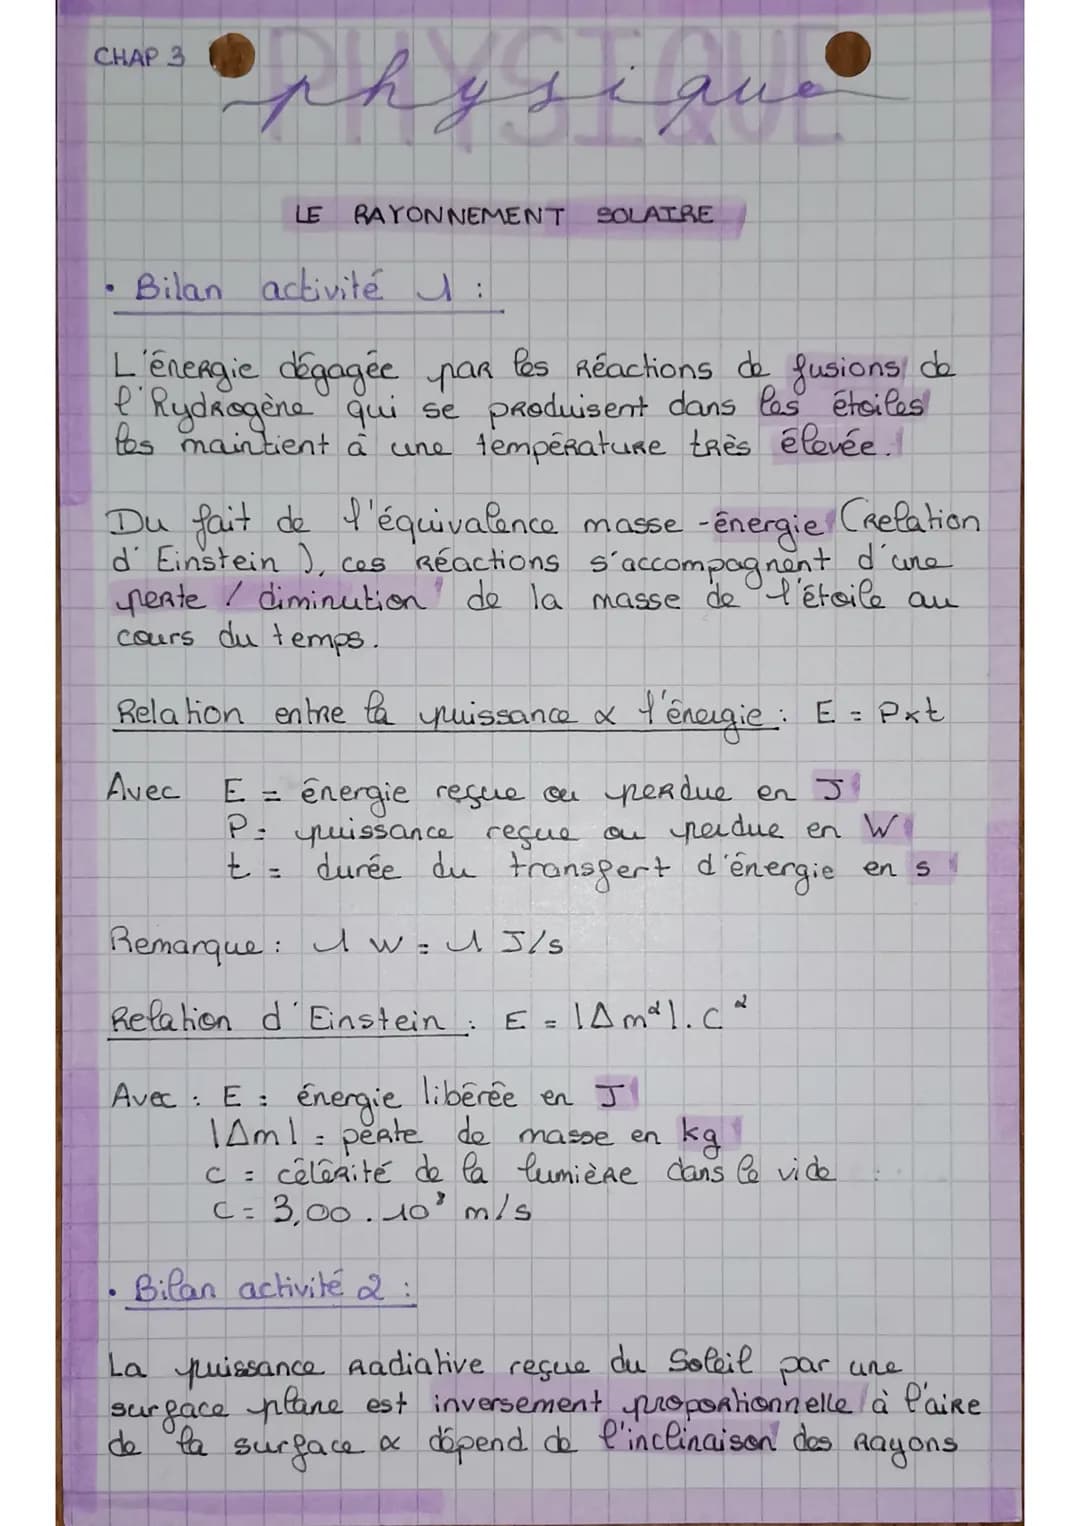 CHAP 3
PHYSIQUE
physique
LE RAYONNEMENT SOLAIRE
• Bilan activité 1 :
L'énergie dégagée par les réactions de fusions de
l'hydrogène qui se produisent dans les étoiles
les maintient à une température très élevée.
Du fait de l'équivalence masse-énergie (relation
d'Einstein), ces réactions s'accompagnent d'une
perte / diminution de la masse de l'étoile au
cours du temps.
Relation entre la puissance & l'énergie : E = P×t
Avec E = énergie reçue ou perdue en J
P = puissance reçue ou perdue en W
t = durée du transfert d'énergie en s
Remarque : 1 W = 1 J/s
Relation d'Einstein : E = |Δm²|.c²
Avec : E : énergie libérée en J
|Δm| = perte de masse en kg
c = célérité de la lumière dans le vide :
C = 3,00.10⁸ m/s
• Bilan activité 2 :
La puissance radiative reçue du Soleil par une
surface plane est inversement proportionnelle à l'aire
de la surface & dépend de l'inclinaison des rayons